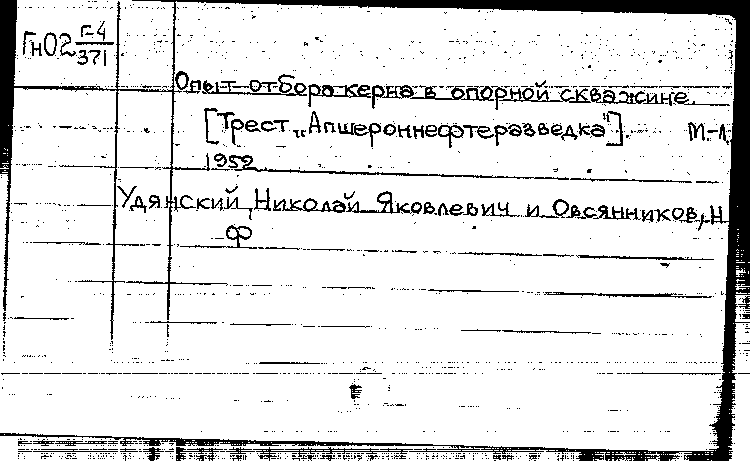 ГнО2 Г-4
371
Опыт отбора керна в опорной скважине.
[Трест „Апшероннефтеразведка"]. М-Л
1952
Удянский, Николай Яковлевич и Овсянников, Н
Ф